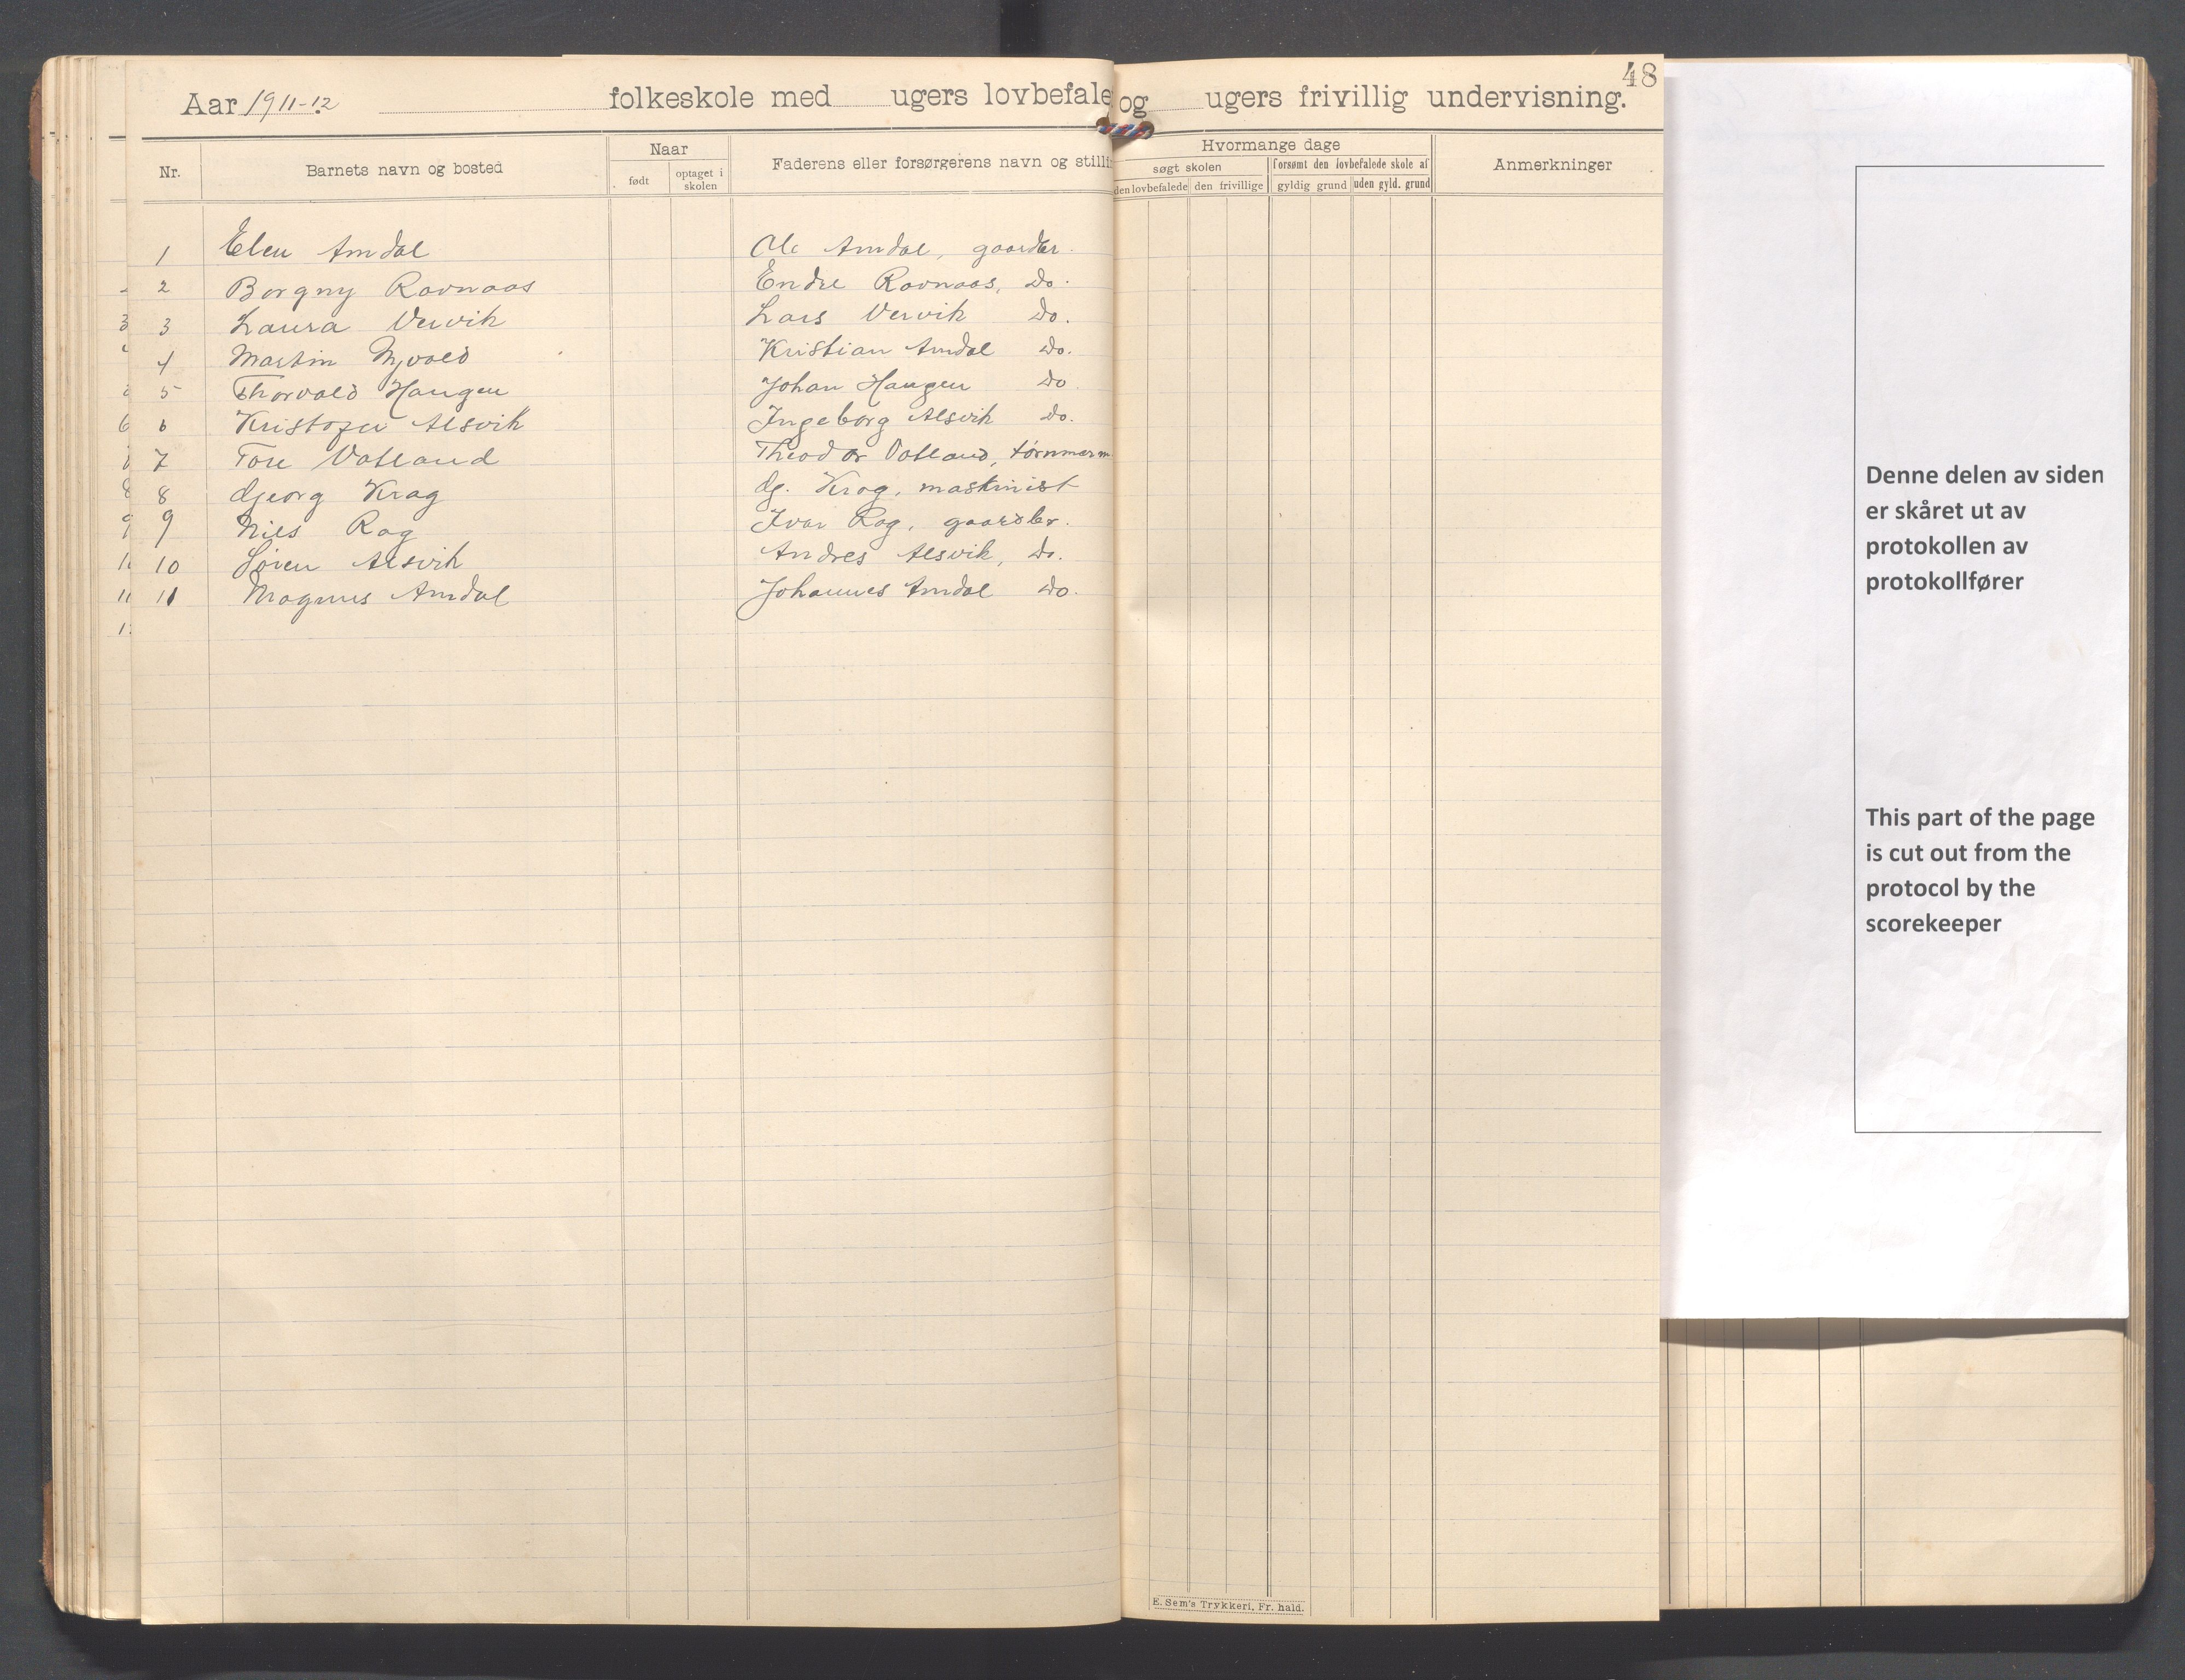 48
Aar 1911-12 folkeskole med ugers lovbefale og ugers frivillig undervisning.
Nr. Barnets navn og bosted Naar Faderens eller forsørgerens navn og stilli Hvormange dage Anmerkninger
født optaget i skolen søgt skolen forsømt den lovbefalede skole af
den lovbefalede den frivillige gyldig grund uden gyld. grund
1 Elen Amdal Ole Amdal, gaardbr.
2 Borgny Ravnaas Endre Ravnaas, Do.
3 3 Laura Vervik Lars Vervik Do.
4 Martin Kristian Amdal Do.
5 Thorvald Haugen Johan Haugen Do
6 6 Kristofer Alsvik Ingeborg Alsvik Do.
7 Tore Vatland Theodor Vatland, tømmerm
8 8 Georg Krag G. Krog, maskinist
9 9 Nils Rag Ivar Rag, gaardbr.
10 Søren Alsvik Andres Alsvik, Do.
11 11 Magnus Amdal Johannes Amdal Do.
E. Sem's Trykkeri, Fr. hald.
Denne delen av siden
er skåret ut av
protokollen av
protokollfører
This part of the page
is cut out from the
protocol by the
scorekeeper